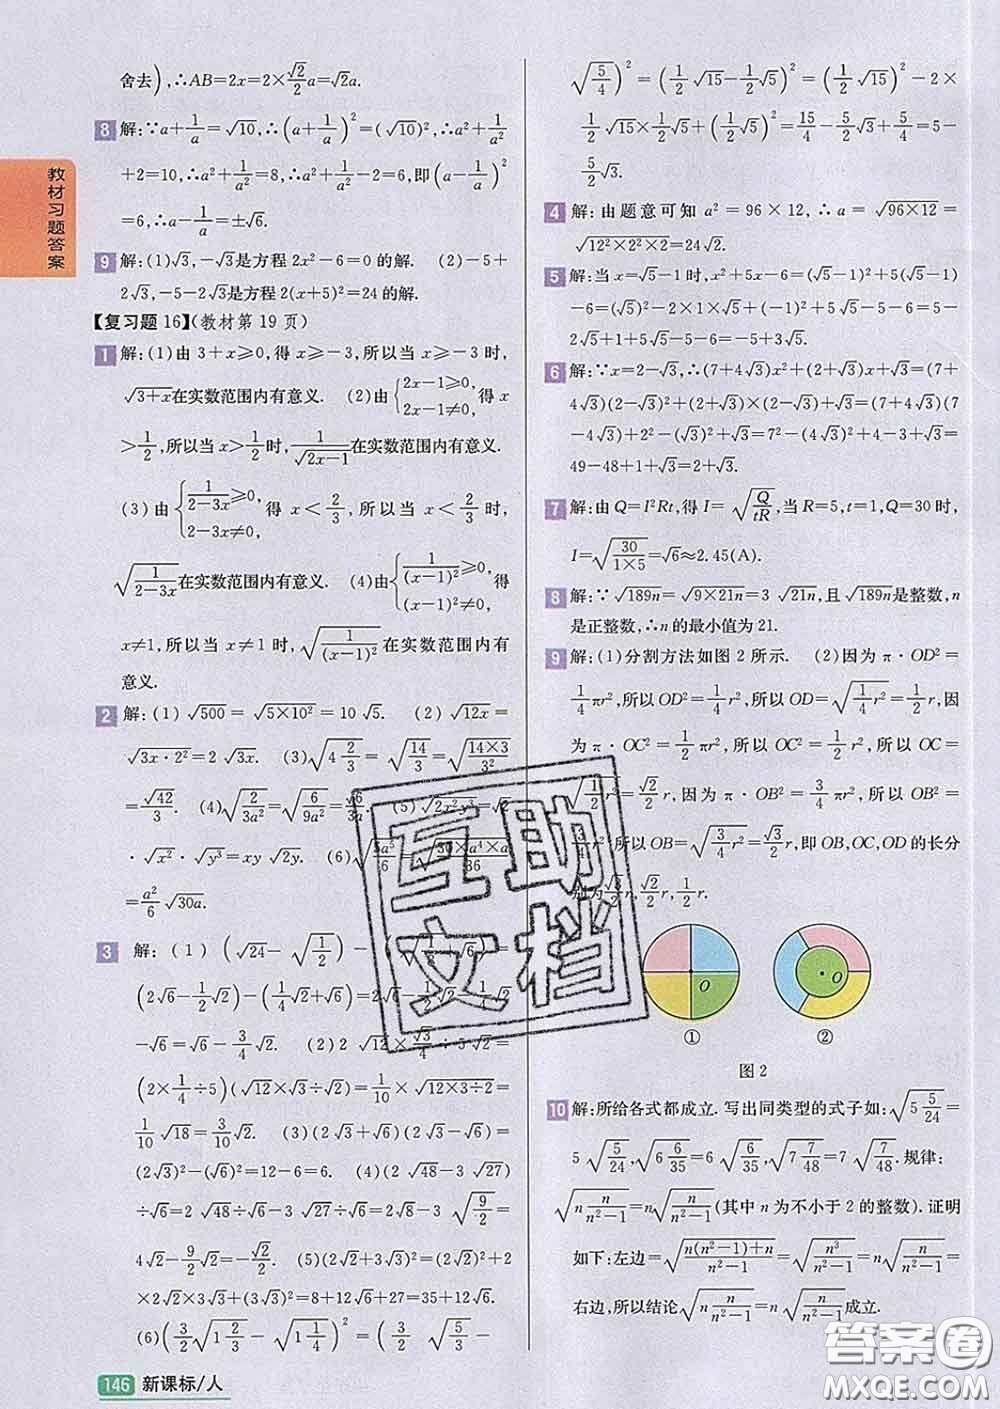 教材习题答案
舍去),∴AB=2x=2×√2/2a=√2a.
8 解:∵a+1/a=√10,∴(a+1/a)²=(√10)²,∴a²+1/a²
+2=10,∴a²+1/a²=8,∴a²+1/a²-2=6,即(a-1/a)²
=6,∴a-1/a=±√6.
9 解:(1)√3,-√3是方程2x²-6=0的解. (2)-5+
2√3,-5-2√3是方程2(x+5)²=24的解.
【复习题16】(教材第19页)
1 解:(1)由3+x≥0,得x≥-3,所以当x≥-3时,
√(3+x)在实数范围内有意义. (2)由{2x-1≥0, 2x-1≠0,得x
>1/2,所以当x>1/2时,1/√(2x-1)在实数范围内有意义.
(3)由{1/(2-3x)≥0, 2-3x≠0,得x<2/3,所以当x<2/3时,
√(1/(2-3x))在实数范围内有意义. (4)由{1/(x-1)²≥0, (x-1)²≠0,得
x≠1,所以当x≠1时,√(1/(x-1)²)在实数范围内有
意义.
2 解:(1)√500=√(5×10²)=10√5. (2)√(12x)=
√(3x·2²)=2√(3x). (3)√(4 2/3)=√(14/3)=√((14×3)/3²)
=√42/3. (4)√(2/(3a²))=√(6/(9a²))=√6/(3a). (5)√(2x²y³)=√2
·√(x²)·√(y³)=xy√(2y). (6)√(5a⁵/6)=√((30×a⁴×a)/36)
=a²/6√(30a).
3 解:(1)(√24-√(1/2))-(√6)=
(2√6-1/2√2)-(1/4√2+√6)=2√6-1/2√2-1/4√2
-√6=√6-3/4√2. (2)2√12×√3/4÷5√2=
(2×1/4÷5)(√12×√3÷√2)=1/10×√(12×3÷2)=
1/10√18=3/10√2. (3)(2√3+√6)(2√3-√6)=
(2√3)²-(√6)²=12-6=6. (4)(2√48-3√27)
÷√6=2√48÷√6-3√27÷√6=2√8-3√(9/2)=
4√2-9/2√2=-√2/2. (5)(2√2+3√3)²=(2√2)²+2
×2√2×3√3+(3√3)²=8+12√6+27=35+12√6.
(6)(3/2√(1 2/3)-√(1 1/4))²=(3/2√(5/3)-
√(5/4))²=(1/2√15-1/2√5)²=(1/2√15)²-2×
1/2√15×1/2√5+(1/2√5)²=15/4-5/2√3+5/4=5-
5/2√3.
4 解:由题意可知a²=96×12,∴a=√(96×12)=
√(12²×2²×2)=24√2.
5 解:当x=√5-1时,x²+5x-6=(√5-1)²+5(√5-1)
-6=(√5)²-2√5×1+(-1)²+5√5-5-6=5-
2√5+1+5√5-5-6=-5+3√5.
6 解:∵x=2-√3,∴(7+4√3)x²+(2+√3)x+√3=(7+
4√3)(2-√3)²+(2+√3)×(2-√3)+√3=(7+4√3)(7-
4√3)+2²-(√3)²+√3=7²-(4√3)²+4-3+√3=
49-48+1+√3=2+√3.
7 解:由Q=I²Rt,得I=√(Q/(tR)),当R=5,t=1,Q=30时,
I=√(30/(1×5))=√6≈2.45(A).
8 解:∵√(189n)=√(9×21n)=3√(21n),且√(189n)是整数,n
是正整数,∴n的最小值为21.
9 解:(1)分割方法如图2所示. (2)因为π·OD²=
1/4πr²,所以OD²=1/4r²,所以OD=√(1/4r²)=1/2r,因
为π·OC²=1/2πr²,所以OC²=1/2r²,所以OC=
√(1/2r²)=√2/2r,因为π·OB²=3/4πr²,所以OB²=
3/4r²,所以OB=√(3/4r²)=√3/2r,即OB,OC,OD的长分
别为√3/2r,√2/2r,1/2r.
O
O
① ②
图2
10 解:所给各式都成立.写出同类型的式子如:√(5 5/24)=
5√(5/24),√(6 6/35)=6√(6/35),√(7 7/48)=7√(7/48).规律:
√(n n/(n²-1))=n√(n/(n²-1))(其中n为不小于2的整数).证明
如下:左边=√((n(n²-1)+n)/(n²-1))=√(n³/(n²-1))=n√(n/(n²-1))=
右边,所以结论√(n n/(n²-1))=n√(n/(n²-1))成立.
互助
文档
答案圈
MXQE.COM
146 新课标/人